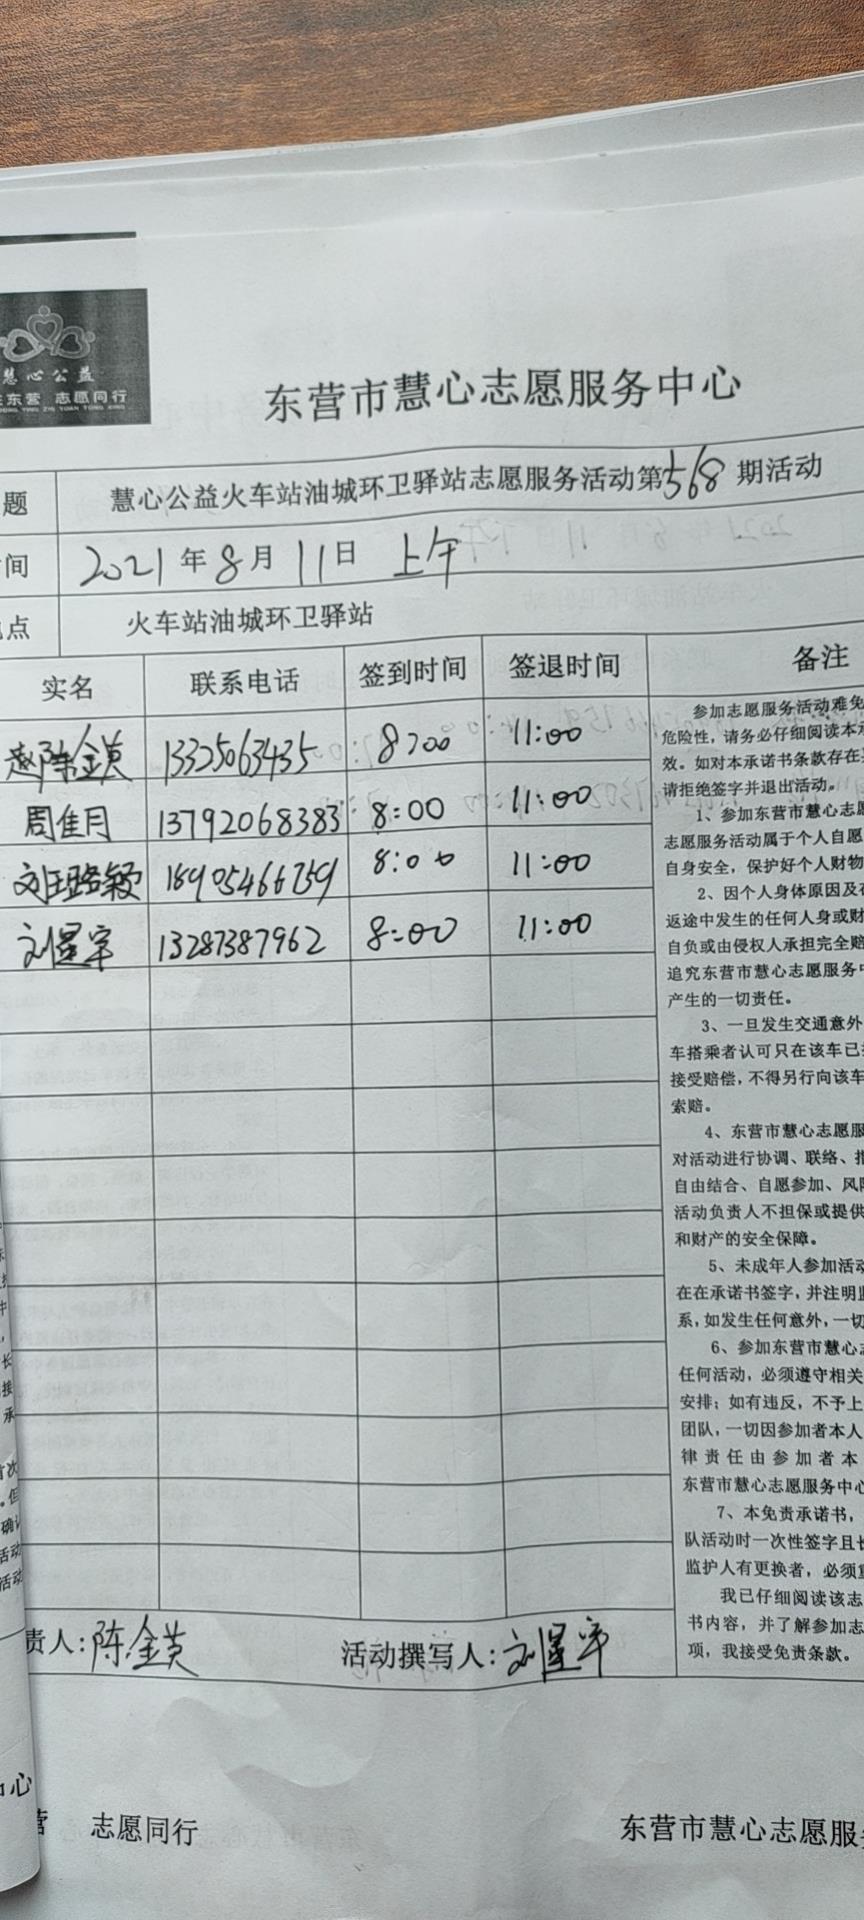 慧心公益
东营 志愿同行
东营市慧心志愿服务中心
题 慧心公益火车站油城环卫驿站志愿服务活动第568期活动
间 2021年8月11日 上午
点 火车站油城环卫驿站
实名 联系电话 签到时间 签退时间 备注
陈金英 13325063435 8:00 11:00
周佳月 13792068383 8:00 11:00
刘珏璐颖 18905466759 8:00 11:00
刘星宇 13287387962 8:00 11:00
参加志愿服务活动难免
危险性，请务必仔细阅读本承
效。如对本承诺书条款存在
请拒绝签字并退出活动。
1、参加东营市慧心志愿
志愿服务活动属于个人自愿
自身安全，保护好个人财物
2、因个人身体原因及
返途中发生的任何人身或财
自负或由侵权人承担完全赔
追究东营市慧心志愿服务中
产生的一切责任。
3、一旦发生交通意外
车搭乘者认可只在该车已
接受赔偿，不得另行向该车
索赔。
4、东营市慧心志愿服
对活动进行协调、联络、指
自由结合、自愿参加、风险
活动负责人不担保或提供
和财产的安全保障。
5、未成年人参加活动
在在承诺书签字，并注明监
系，如发生任何意外，一切
6、参加东营市慧心志
任何活动，必须遵守相关
安排；如有违反，不予上
团队，一切因参加者本人
律责任由参加者本
东营市慧心志愿服务中心
7、本免责承诺书，
队活动时一次性签字且长
监护人有更换者，必须重
我已仔细阅读该志
书内容，并了解参加志
项，我接受免责条款。
责人：陈金英 活动撰写人：刘星宇
营 志愿同行 东营市慧心志愿服务